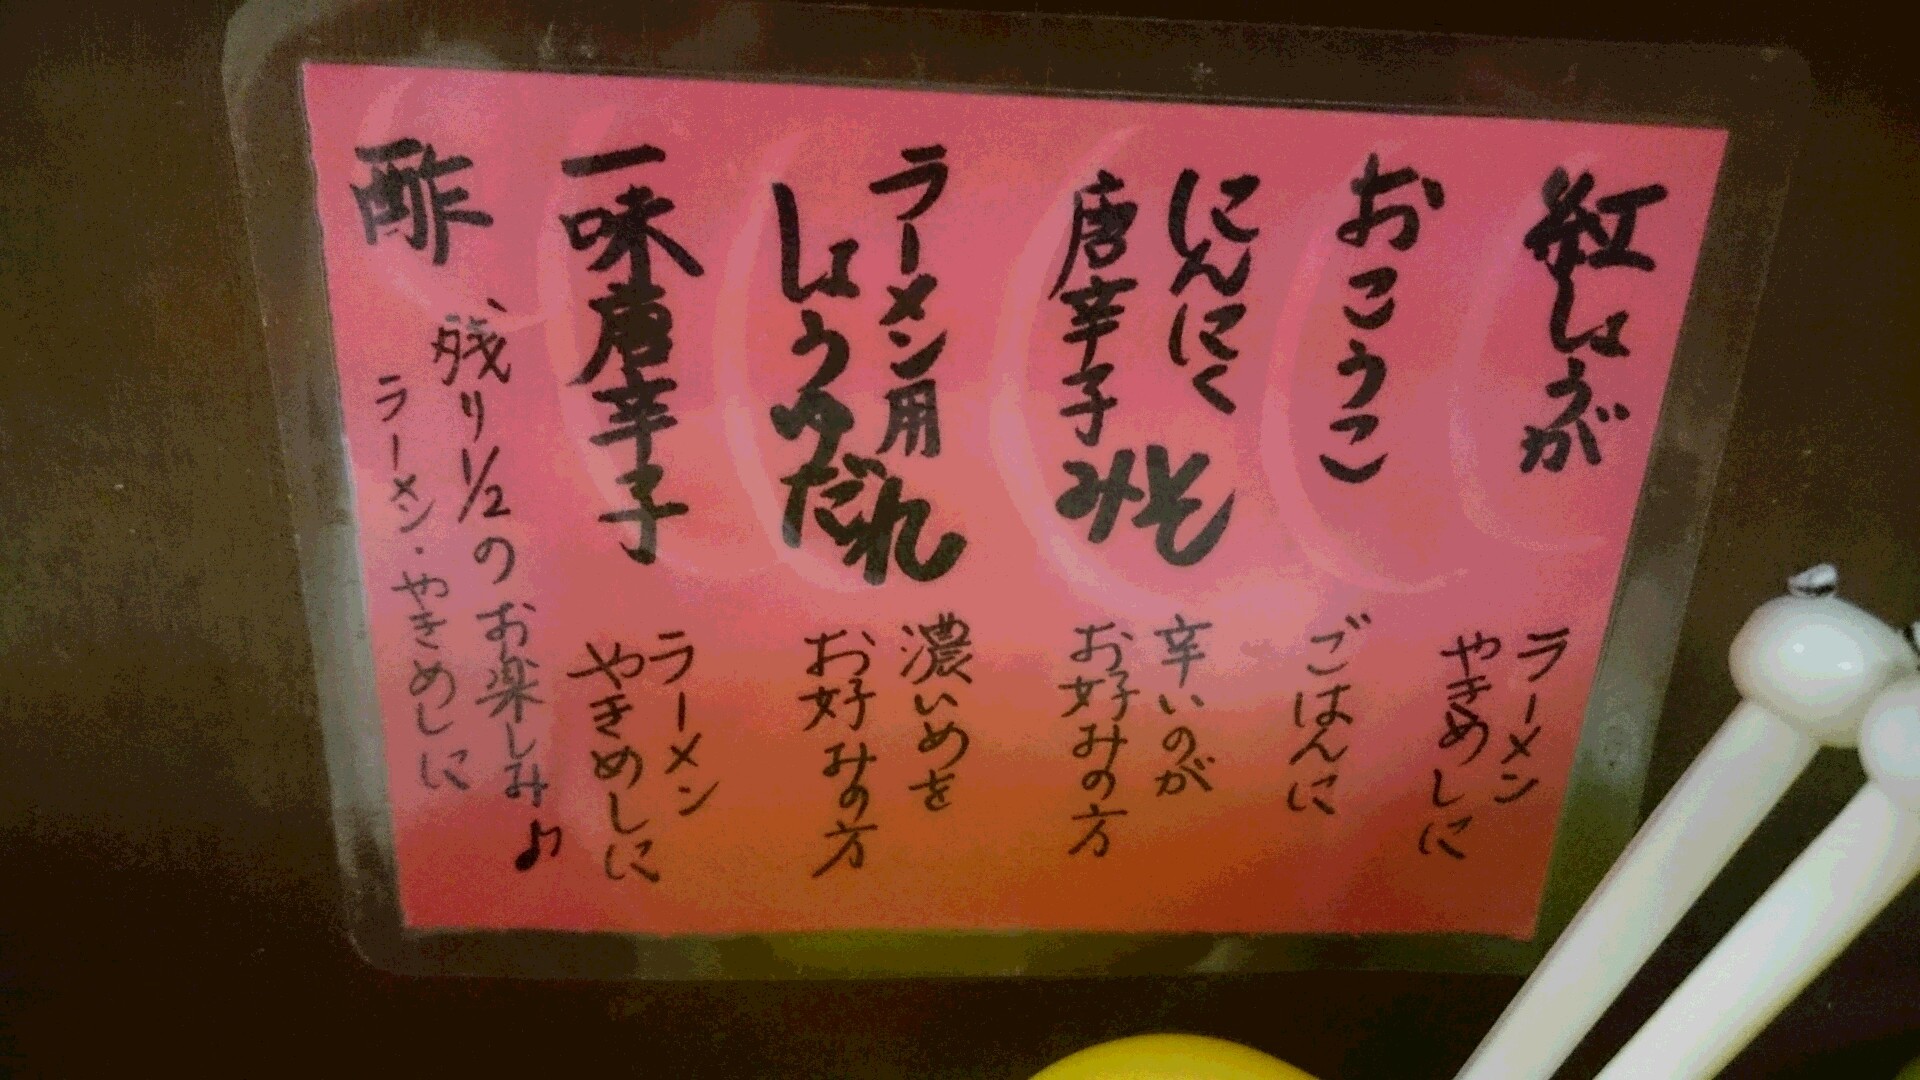 紅しょうが
ラーメン
やきめしに
おこうこ
ごはんに
にんにく
唐辛子みそ
辛いのが
お好みの方
ラーメン用
しょうゆだれ
濃いめを
お好みの方
一味唐辛子
ラーメン
やきめしに
酢
残り1/2のお楽しみ♪
ラーメン・やきめしに